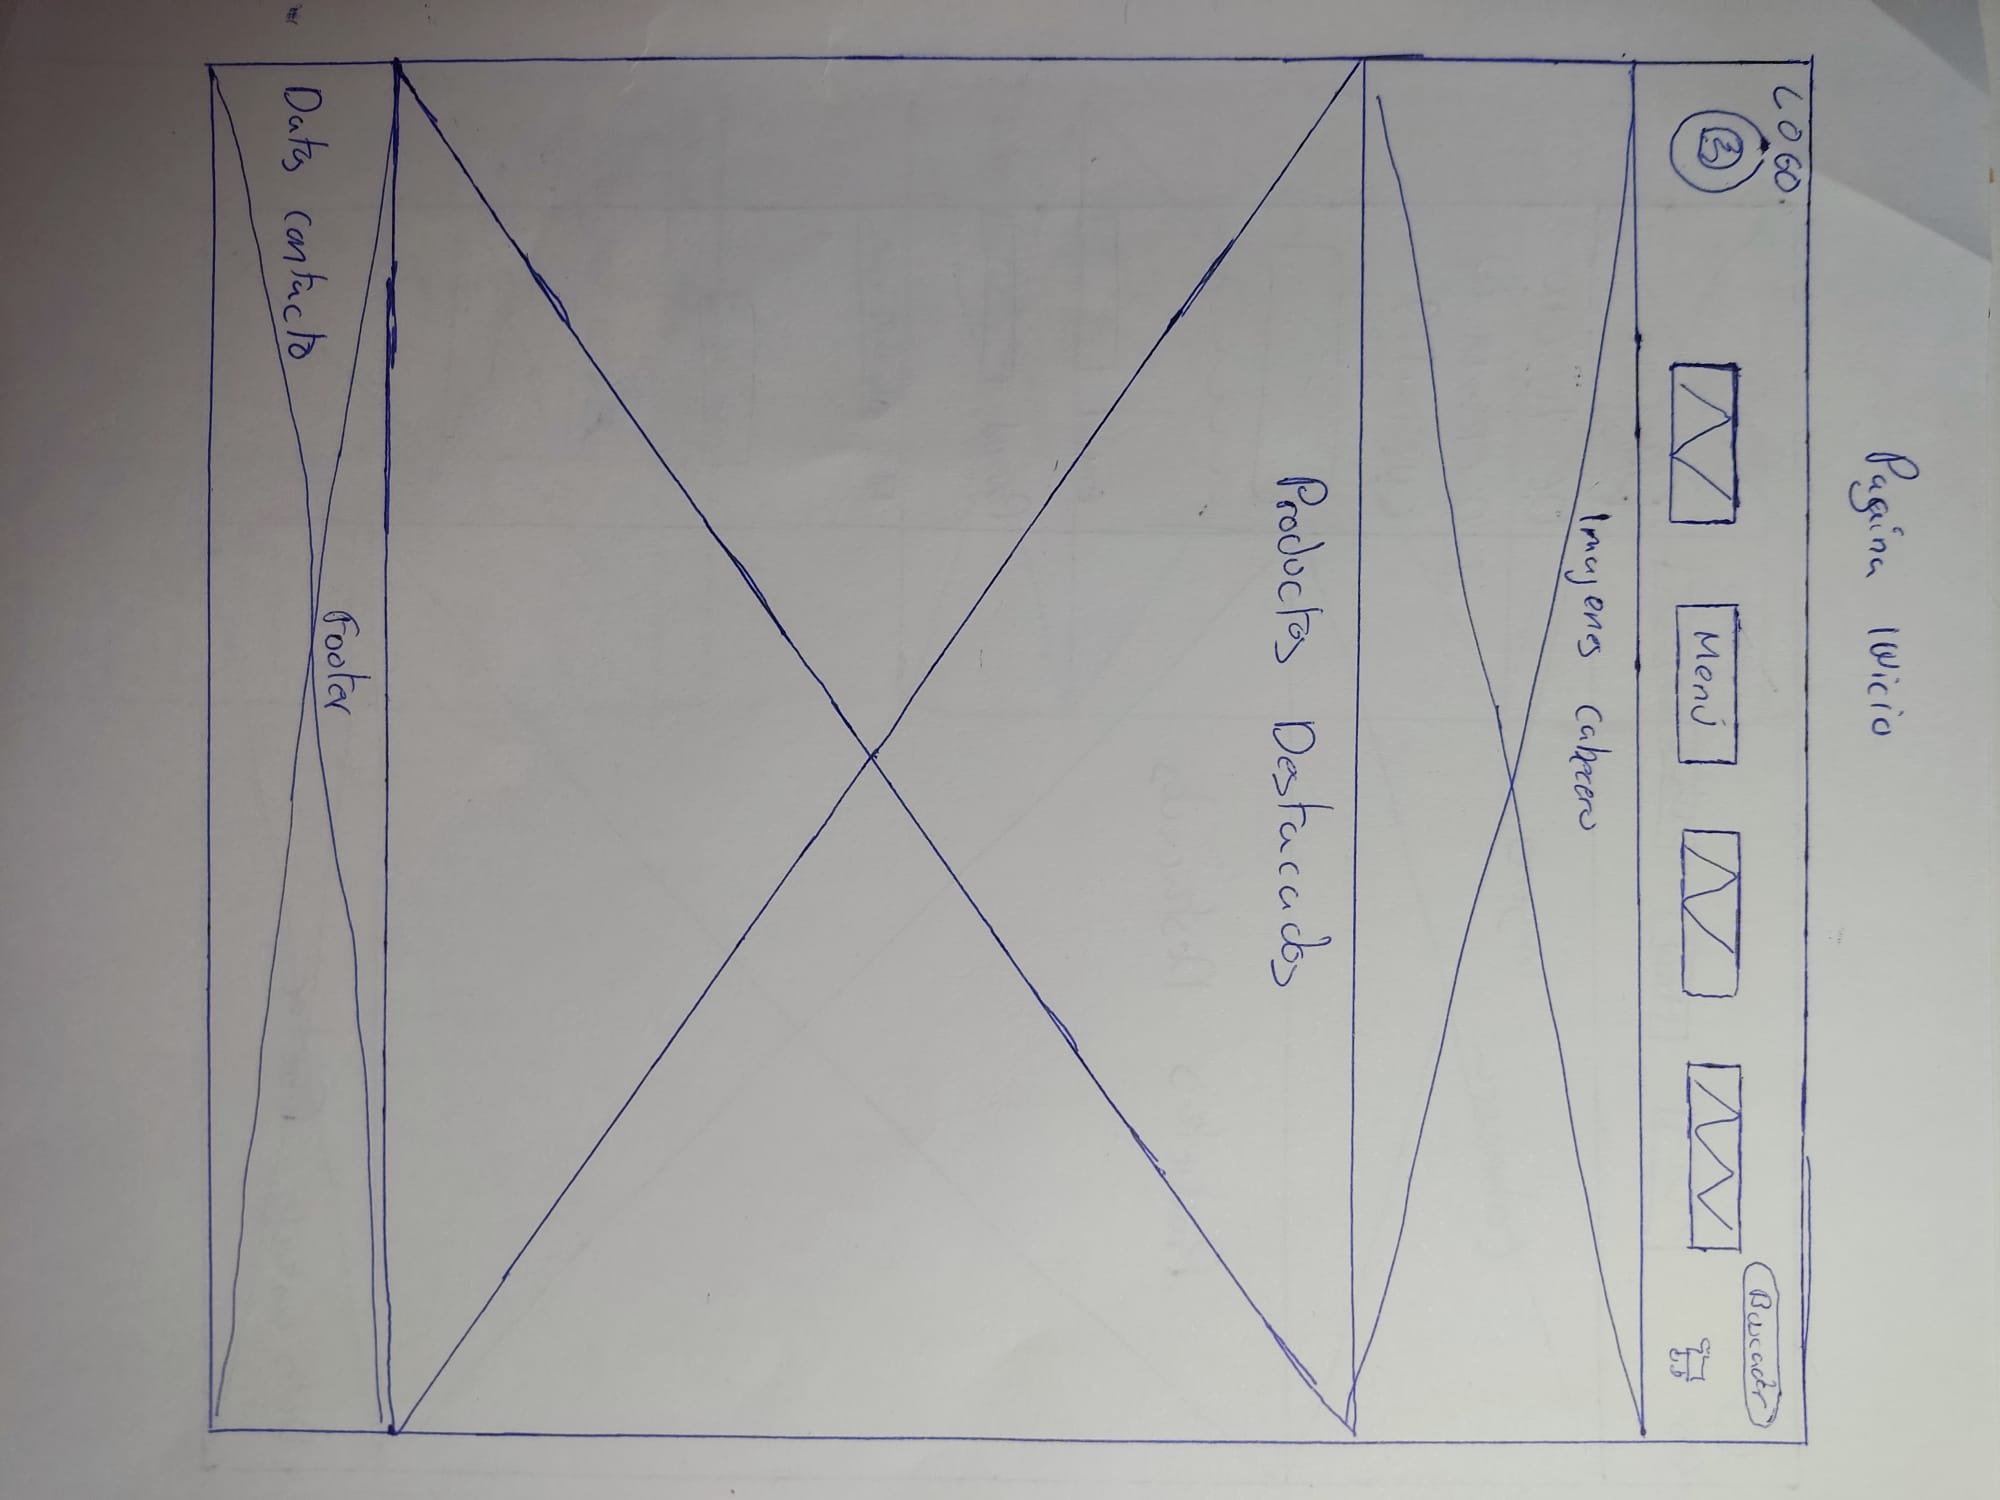 Pagina Inicio
LOGO.
Buscador
Menú
Imagenes Cabecera
Productos Destacados
Footer
Datos contacto